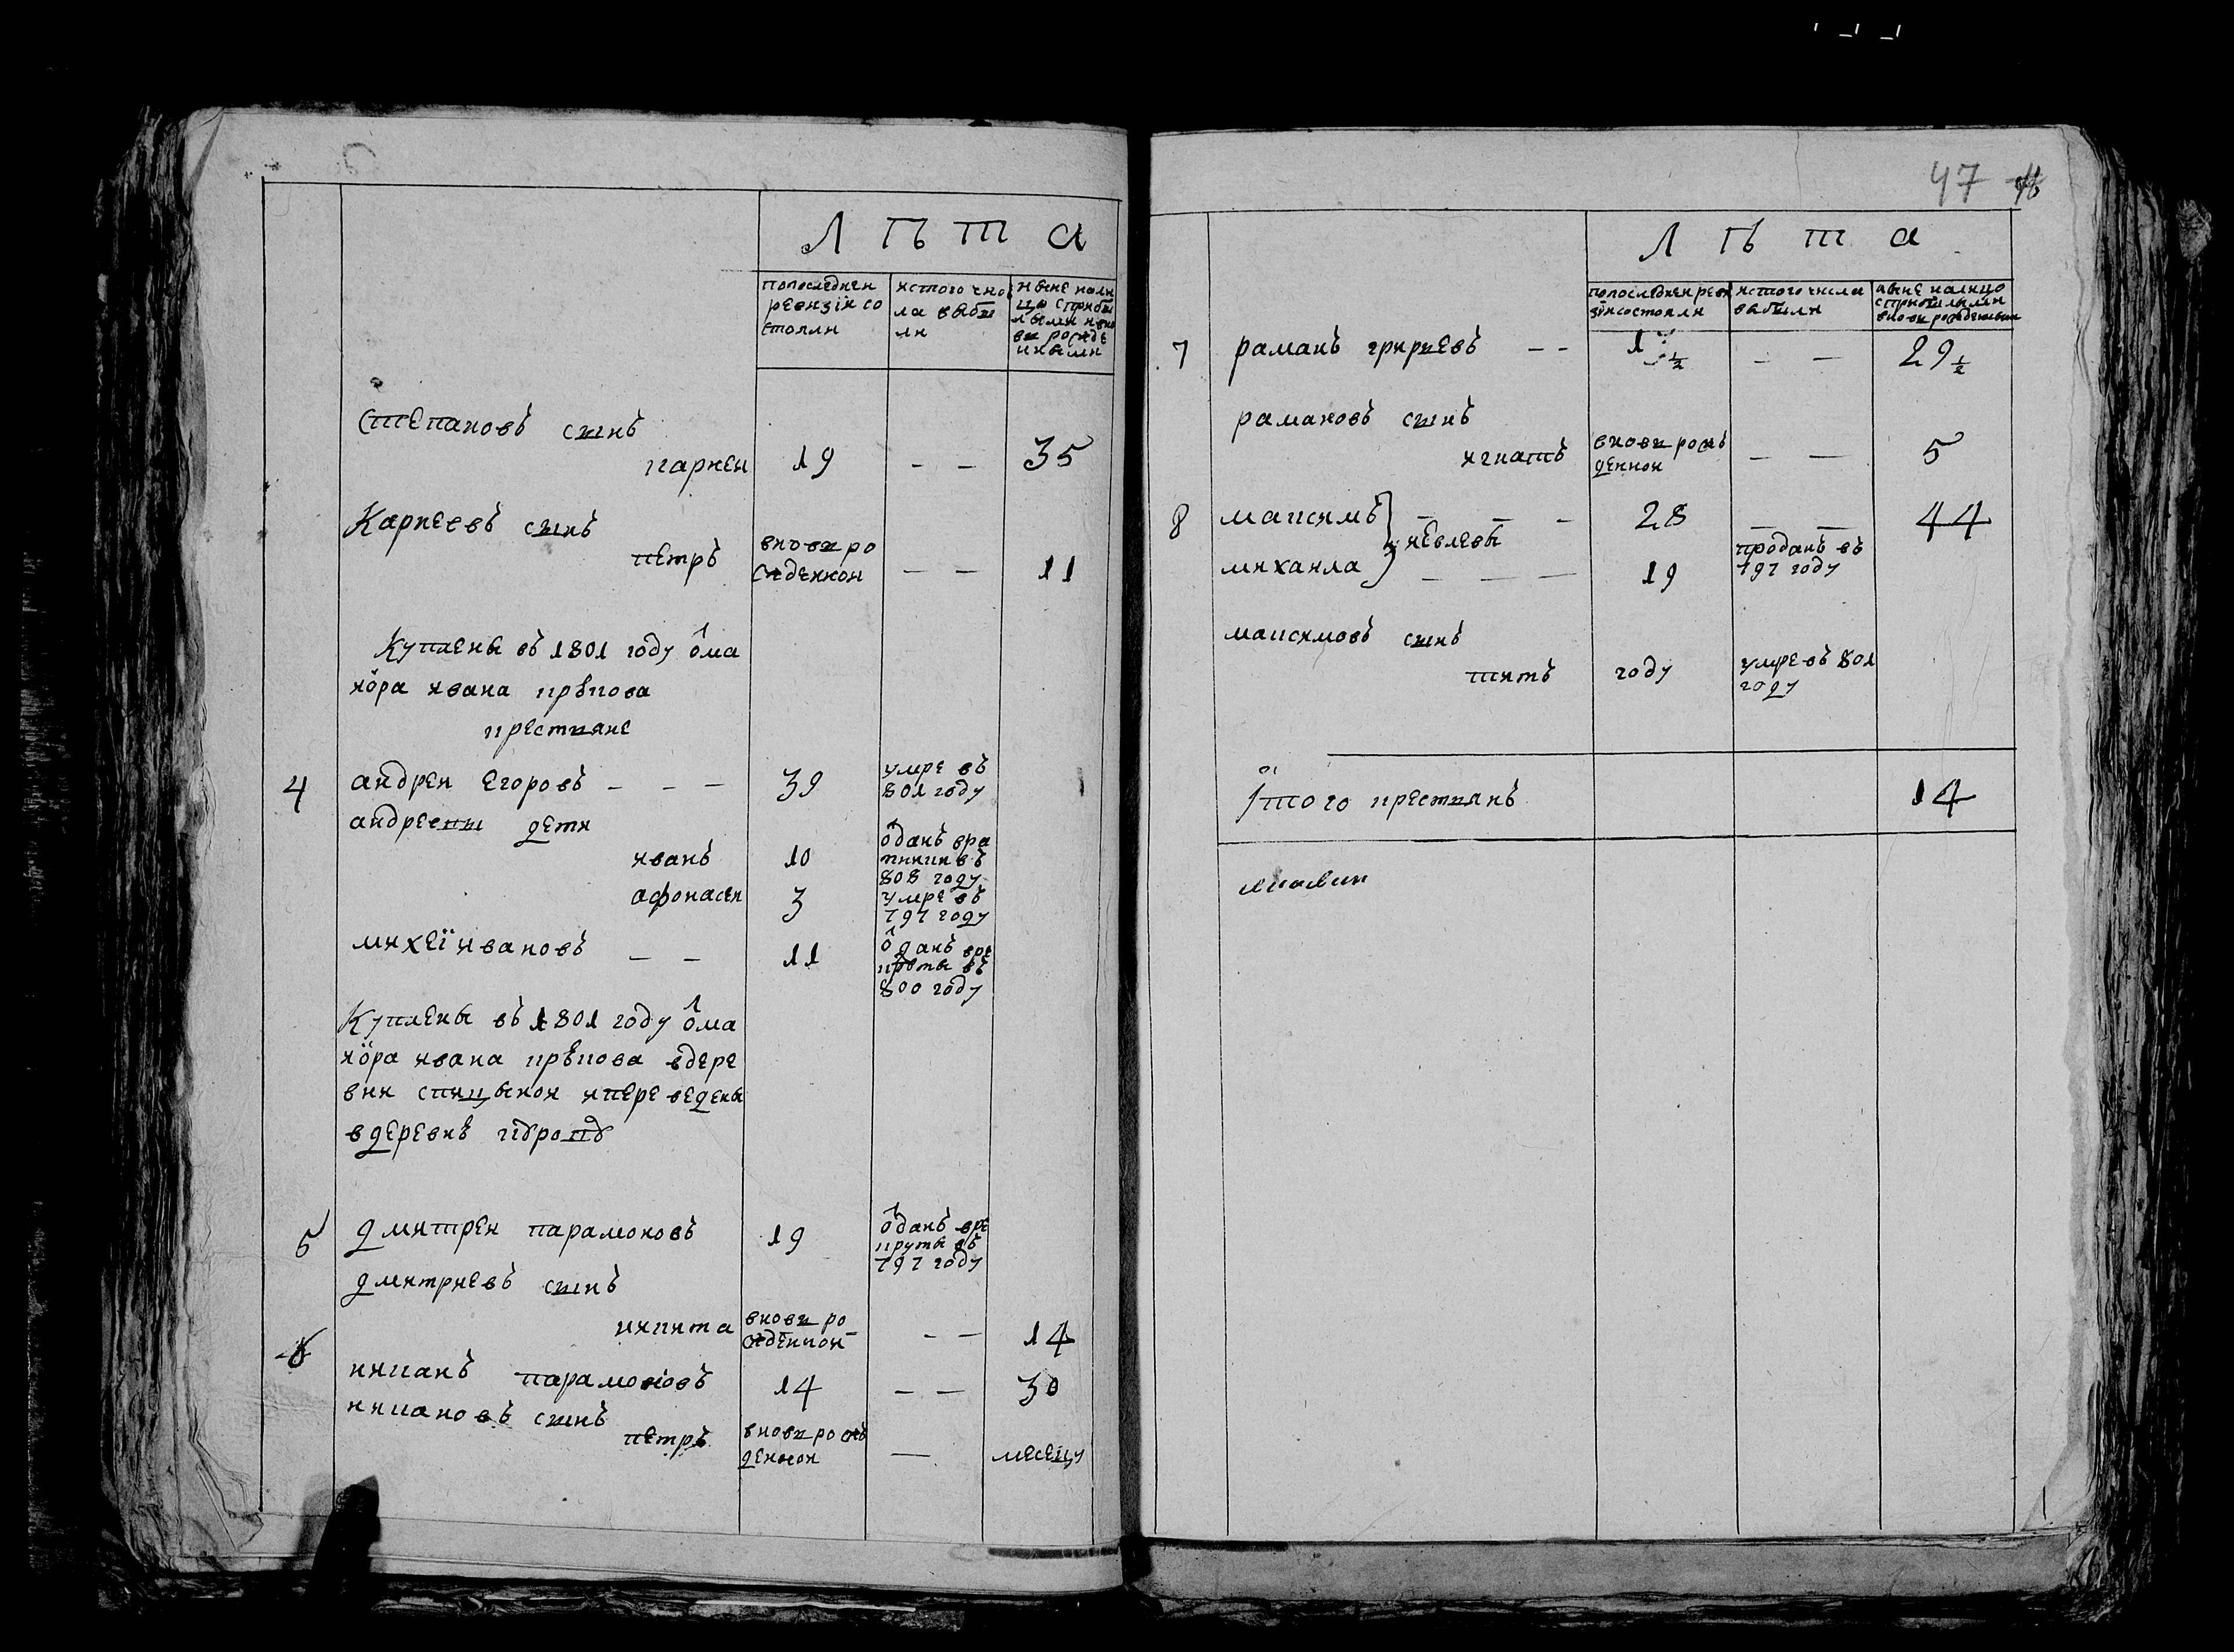 Л ѣ т а
попоследнеи ревензïи состояли
истого числа выбыли
ныне налицо сприбылыми ивновь рожденными
Степановъ сынъ
карнеи 19 — — 35
Карнеевъ сынъ
петръ вновь рожденнои — — 11
Куплены въ 1801 году ѿ ма
ïора ивана крѣкова
крестьяне
4 андреи егоровъ — — — 39 умре въ 801 году
андреевы дети
иванъ 10 ѿданъ вратники въ 808 году
афонасеи 3 умре въ 797 году
михеï ивановъ — — 11 ѿданъ врекруты въ 800 году
Куплены въ 1801 году ѿ ма
ïора ивана крѣкова вдере
вни спицынои ипереведены
вдеревнѣ
5 дмитреи парамоновъ 19 ѿданъ врекруты въ 797 году
дмитриевъ сынъ
никита вновь рожденнои — — 14
6 никанъ парамоновъ 14 — — 30
никановъ сынъ
петръ вновь рожденнои — месецу
47
Л ѣ т а
попоследнеи ревизïи состояли
истого числа выбыли
ныне налицо сприбылыми вновь рожденными
7 раманъ гириевъ — — — — 29 1/2
рамановъ сынъ
игнатъ вновь рожъденнои — — 5
8 максимъ — — — 28 — — 44
михаила иевлевы — — — 19 проданъ въ 797 году
максимовъ сынъ
титъ году умре въ 801 году
Ïтого крестьянъ 14